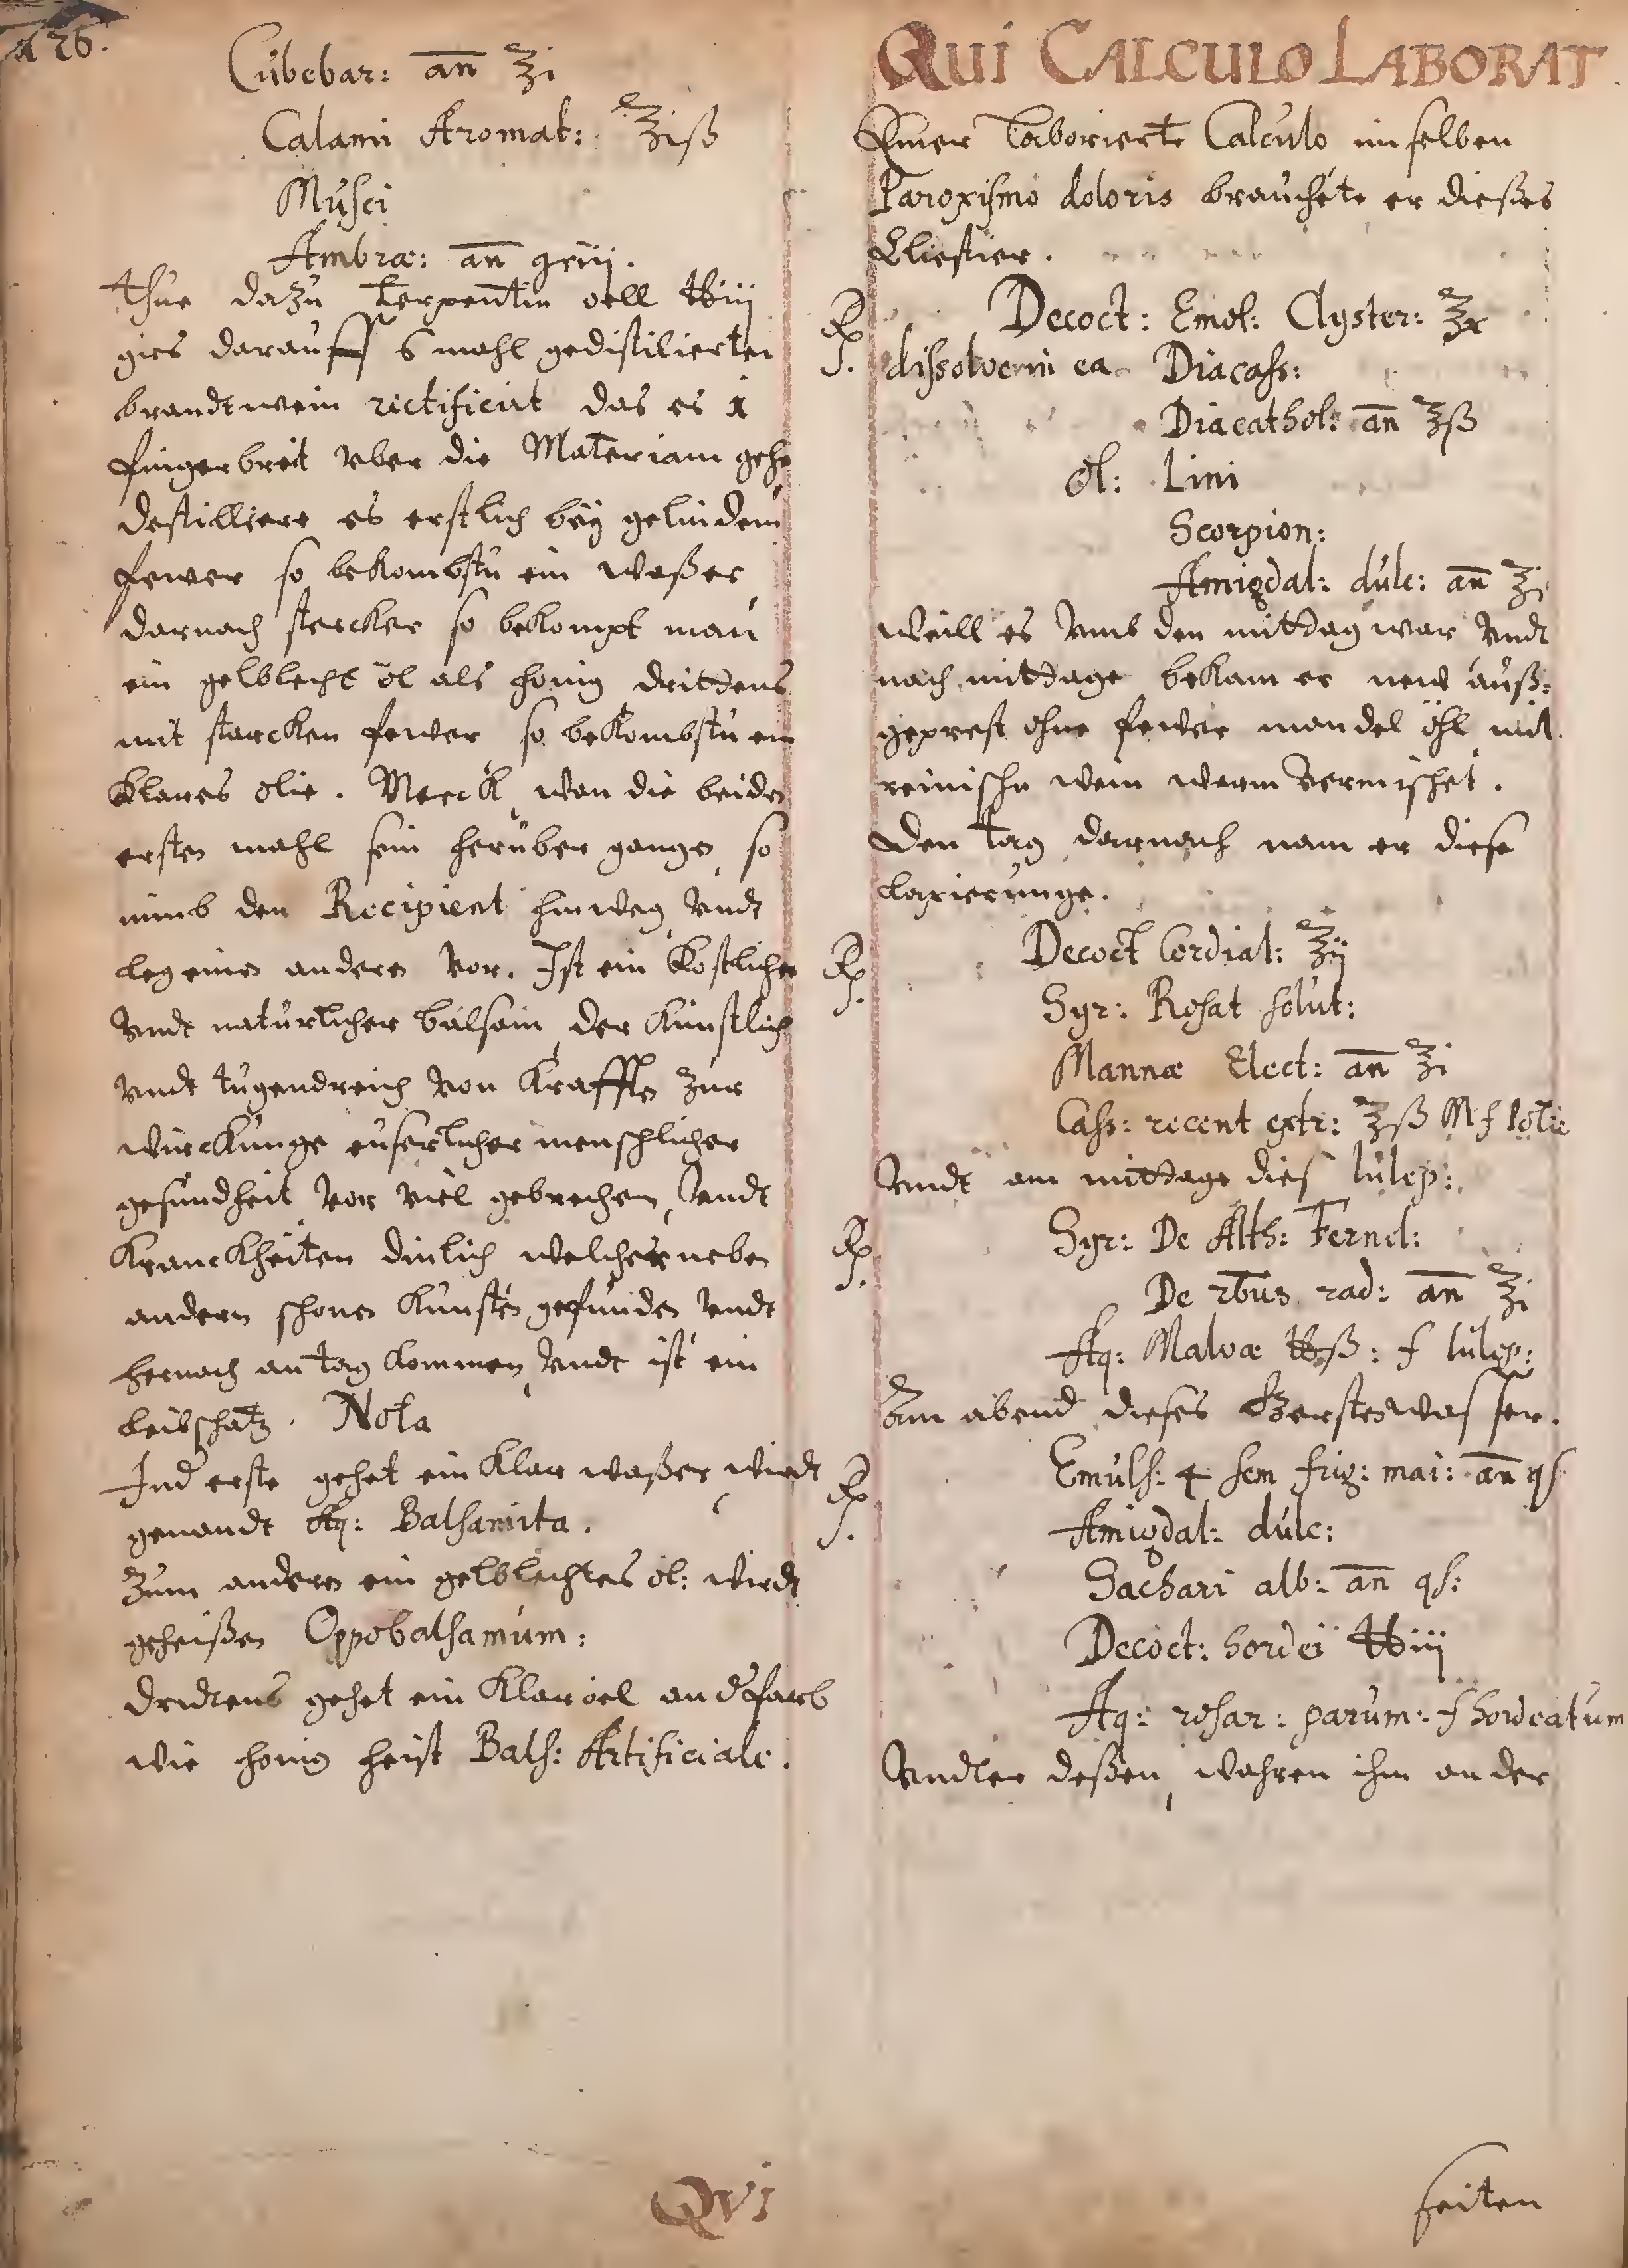 126.
Cubebar: an ʒi
Calami Aromat: ʒiß
Musci
Ambræ: an griij.
Thue dazu Terpentin oell ℔iij
gies darauff 6 mahl gedistilierten
brandtwein rectificirt das es 1
fingerbreit vber die Materiam gehe
destilliere es erstlich bey gelindem
fewer so bekombstu ein waßer,
darnach stercker so bekompt man
ein gelblecht öl als honig drittens
mit starcken fewer so bekombstu ein
klares olie. Merck, wan die beiden
ersten mahl sein herüber gangen, so
nimb den Recipient hinweg, vndt
leg einen anderen vor. Ist ein kostlicher
vndt naturlicher balsam, der kunstlich
vndt tugendreich von krafften zur
würckunge euserlicher menschlicher
gesundheit vor viel gebrechen, vndt
kranckheiten dinlich welcher neben
andern schonen kunsten gefunden vndt
hernach an tag kommen, vndt ist ein
leibschatz. Nota
Ind erste gehet ein klar waßer, wirdt
genandt Aq: Balsamita.
Zum anderen ein gelblechtes öl: wirdt
geheißen Oppobalsamum:
dridtens gehet ein klar oel an d farb
wie honig heist Bals: Artificiale.
QVI
QUI CALCULO LABORAT
Einer laborierte Calculo im selben
Paroxismo doloris brauchete er dießes
Cliestier.
Rp. Decoct: Emol: Clyster: ℥x
dissolverin ea Diacass:
Diacathol: an ℥ß
Ol: Lini
Scorpion:
Amigdal: dulc: an ℥i
weill es vmb den mittdag war vndt
nach mittdage bekam er new auß-
geprest ohne fewer mandel öhl mit
reinischn wein warm vermischet.
Den tag darnach nam er diese
laxierunge.
Rp. Decoct Cordial: ℥ij
Syr: Rosat solut:
Mannæ Elect: an ℥i
Cass: recent extr: ℥ß M f potio
Vndt am mittdage dies Iulep:
Rp. Syr: De Alth: Fernel:
De rbus rad: an ℥i
Aq: Malvæ ℔ß: f Iulep:
Am abend dieses Gerstenwasser.
Rp. Emuls: 4 sem frig: mai: an qs
Amigdal: dulc:
Sachari alb: an qs:
Decoct: hordei ℔iij
Aq: rosar: parum: f hordeatum
Vndter deßen, wahren ihm an der
seiten